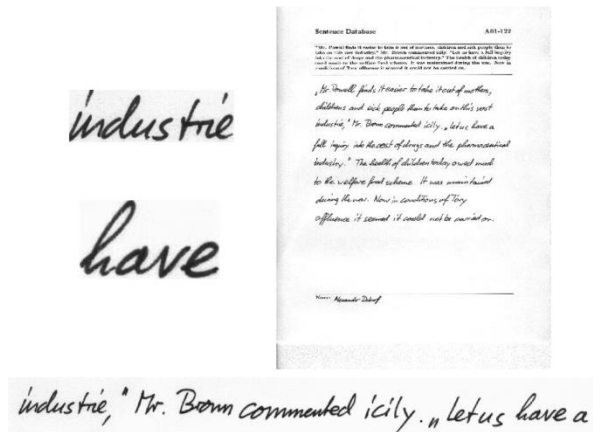 industrie
have
Sentence Database A01-122
"Mr. Powell finds it easier to take it out of mothers, children and sick people than to
take on this vast industry," Mr. Brown commented icily. "Let us have a full inquiry
into the cost of drugs and the pharmaceutical industry." The health of children today
owed much to the welfare food scheme. It was maintained during the war. Now in
conditions of Tory affluence it seemed it could not be carried on.
„Mr Powell finds it easier to take it out of mothers,
childrens and sick people than to take on this vast
industrie," Mr. Brown commented icily. „Let us have a
full inquiry into the cost of drugs and the pharmaceutical
industry." The health of children today owed much
to the welfare food scheme. It was maintained
during the war. Now in conditions of Tory
affluence it seemed it could not be carried on.
Name: Alexander
industrie," Mr. Brown commented icily. „Let us have a